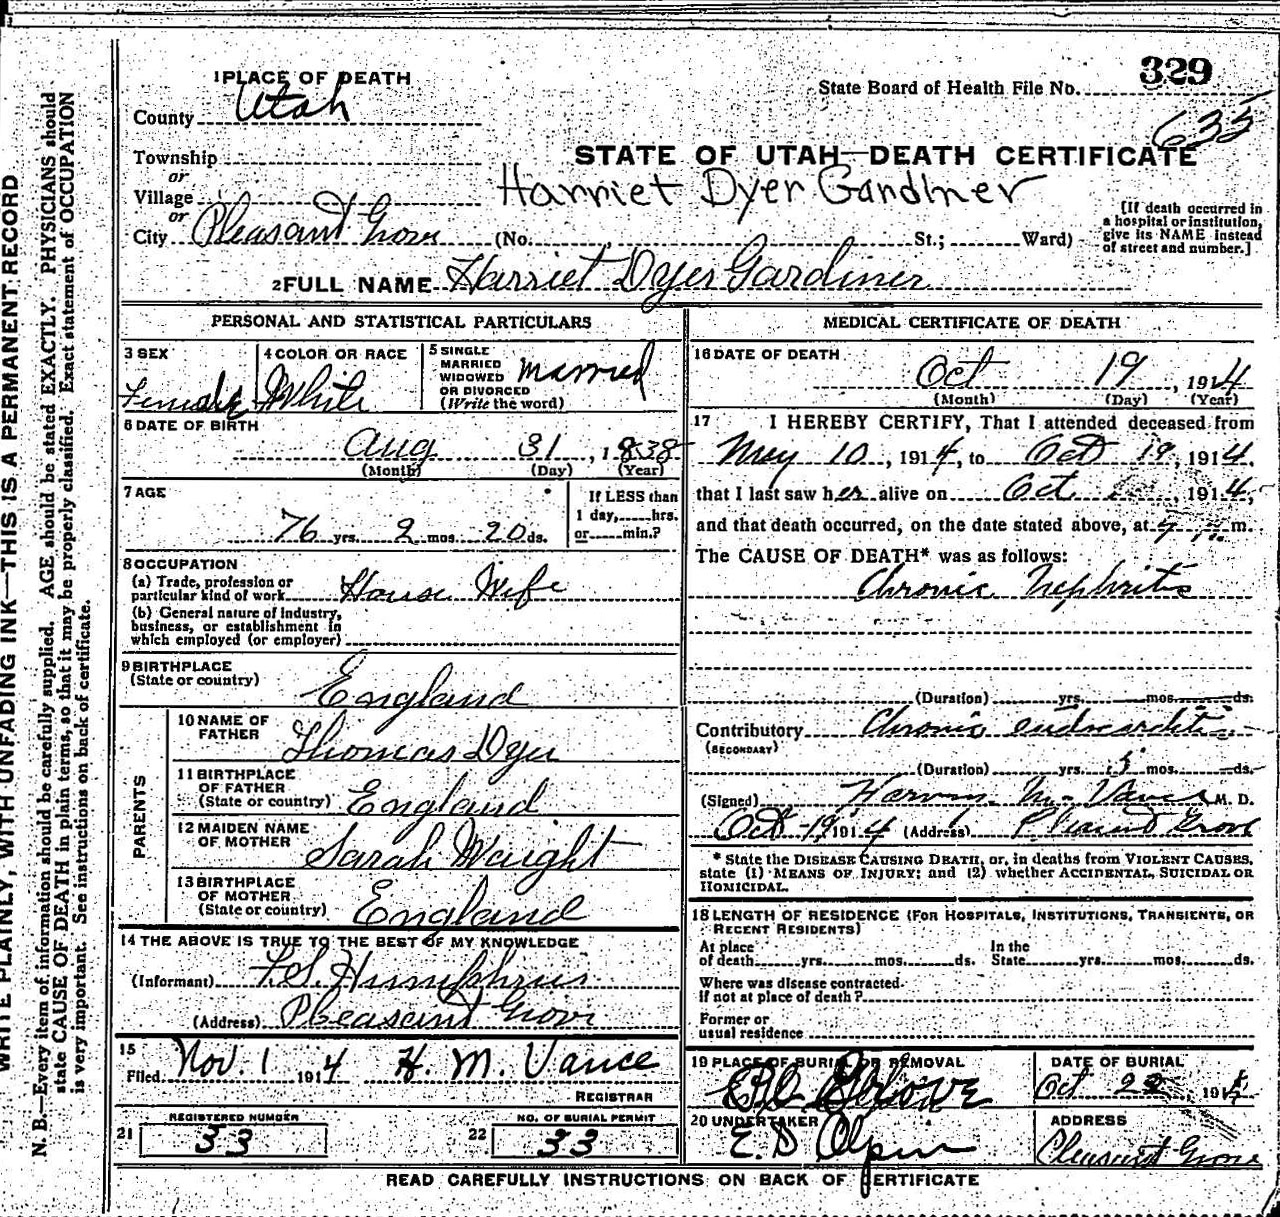 WRITE PLAINLY, WITH UNFADING INK—THIS IS A PERMANENT RECORD
N. B.—Every item of information should be carefully supplied. AGE should be stated EXACTLY. PHYSICIANS should
state CAUSE OF DEATH in plain terms, so that it may be properly classified. Exact statement of OCCUPATION
is very important. See instructions on back of certificate.
1 PLACE OF DEATH
County Utah
Township
or
Village
or
City Pleasant Grove (No. St.; Ward)
State Board of Health File No. 329
635
STATE OF UTAH—DEATH CERTIFICATE
Harriet Dyer Gardiner
[If death occurred in
a hospital or institution,
give its NAME instead
of street and number.]
2 FULL NAME Harriet Dyer Gardiner
PERSONAL AND STATISTICAL PARTICULARS
3 SEX
Female
4 COLOR OR RACE
White
5 SINGLE
MARRIED
WIDOWED
OR DIVORCED
(Write the word)
Married
6 DATE OF BIRTH
Aug 31, 1838
(Month) (Day) (Year)
7 AGE
76 yrs. 2 mos. 20 ds.
If LESS than
1 day, hrs.
or min.?
8 OCCUPATION
(a) Trade, profession or
particular kind of work House Wife
(b) General nature of industry,
business, or establishment in
which employed (or employer)
9 BIRTHPLACE
(State or country) England
PARENTS
10 NAME OF
FATHER Thomas Dyer
11 BIRTHPLACE
OF FATHER
(State or country) England
12 MAIDEN NAME
OF MOTHER Sarah Waight
13 BIRTHPLACE
OF MOTHER
(State or country) England
14 THE ABOVE IS TRUE TO THE BEST OF MY KNOWLEDGE
(Informant) F. S. Humphries
(Address) Pleasant Grove
15
Filed Nov. 1 1914 H. M. Vance
REGISTRAR
REGISTERED NUMBER
21 33
NO. OF BURIAL PERMIT
22 33
MEDICAL CERTIFICATE OF DEATH
16 DATE OF DEATH
Oct 19, 1914
(Month) (Day) (Year)
17 I HEREBY CERTIFY, That I attended deceased from
May 10, 1914, to Oct 19, 1914,
that I last saw her alive on Oct , 1914,
and that death occurred, on the date stated above, at m.
The CAUSE OF DEATH* was as follows:
Chronic Nephritis
(Duration) yrs. mos. ds.
Contributory Chronic endocarditis
(SECONDARY)
(Duration) yrs. mos. ds.
(Signed) M. Vance M. D.
Oct 19 1914 (Address) Pleasant Grove
* State the DISEASE CAUSING DEATH, or, in deaths from VIOLENT CAUSES,
state (1) MEANS OF INJURY; and (2) whether ACCIDENTAL, SUICIDAL OR
HOMICIDAL.
18 LENGTH OF RESIDENCE (FOR HOSPITALS, INSTITUTIONS, TRANSIENTS, OR
RECENT RESIDENTS)
At place
of death yrs. mos. ds.
In the
State yrs. mos. ds.
Where was disease contracted
If not at place of death?
Former or
usual residence
19 PLACE OF BURIAL OR REMOVAL
Grove
DATE OF BURIAL
Oct 22 191
20 UNDERTAKER
E. D Olpin
ADDRESS
Pleasant Grove
READ CAREFULLY INSTRUCTIONS ON BACK OF CERTIFICATE